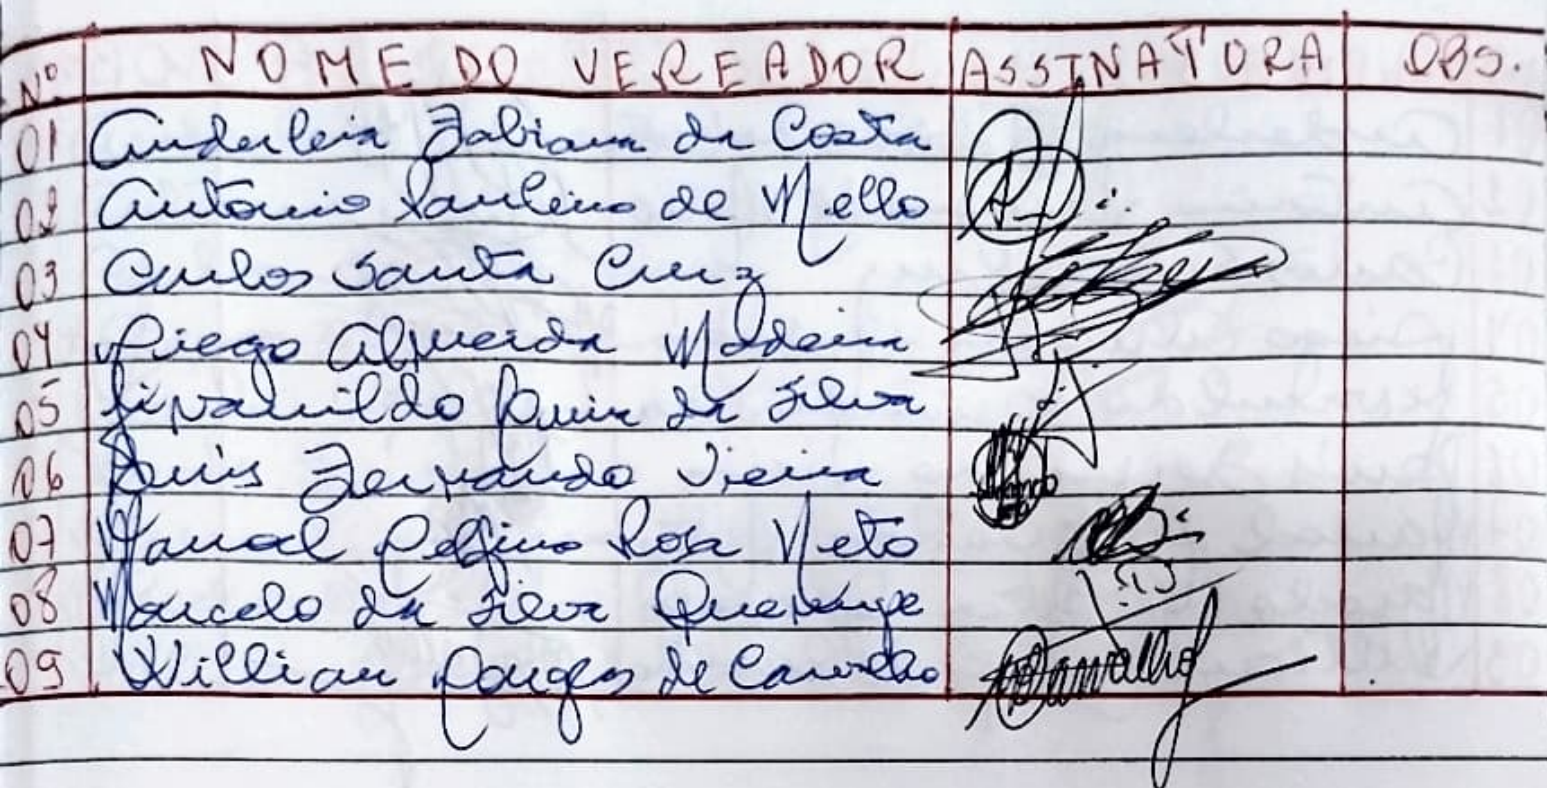 Nº NOME DO VEREADOR ASSINATURA OBS.
01 Anderleia Fabiana da Costa
02 Antonio Paulino de Mello
03 Carlos Santa Cruz
04 Diego Almeida Madeira
05 da Silva
06 Luis Fernando Vieira
07 Manoel Delfino Rosa Neto
08 Marcelo da Silva
09 Willian Borges de Carvalho Carvalho